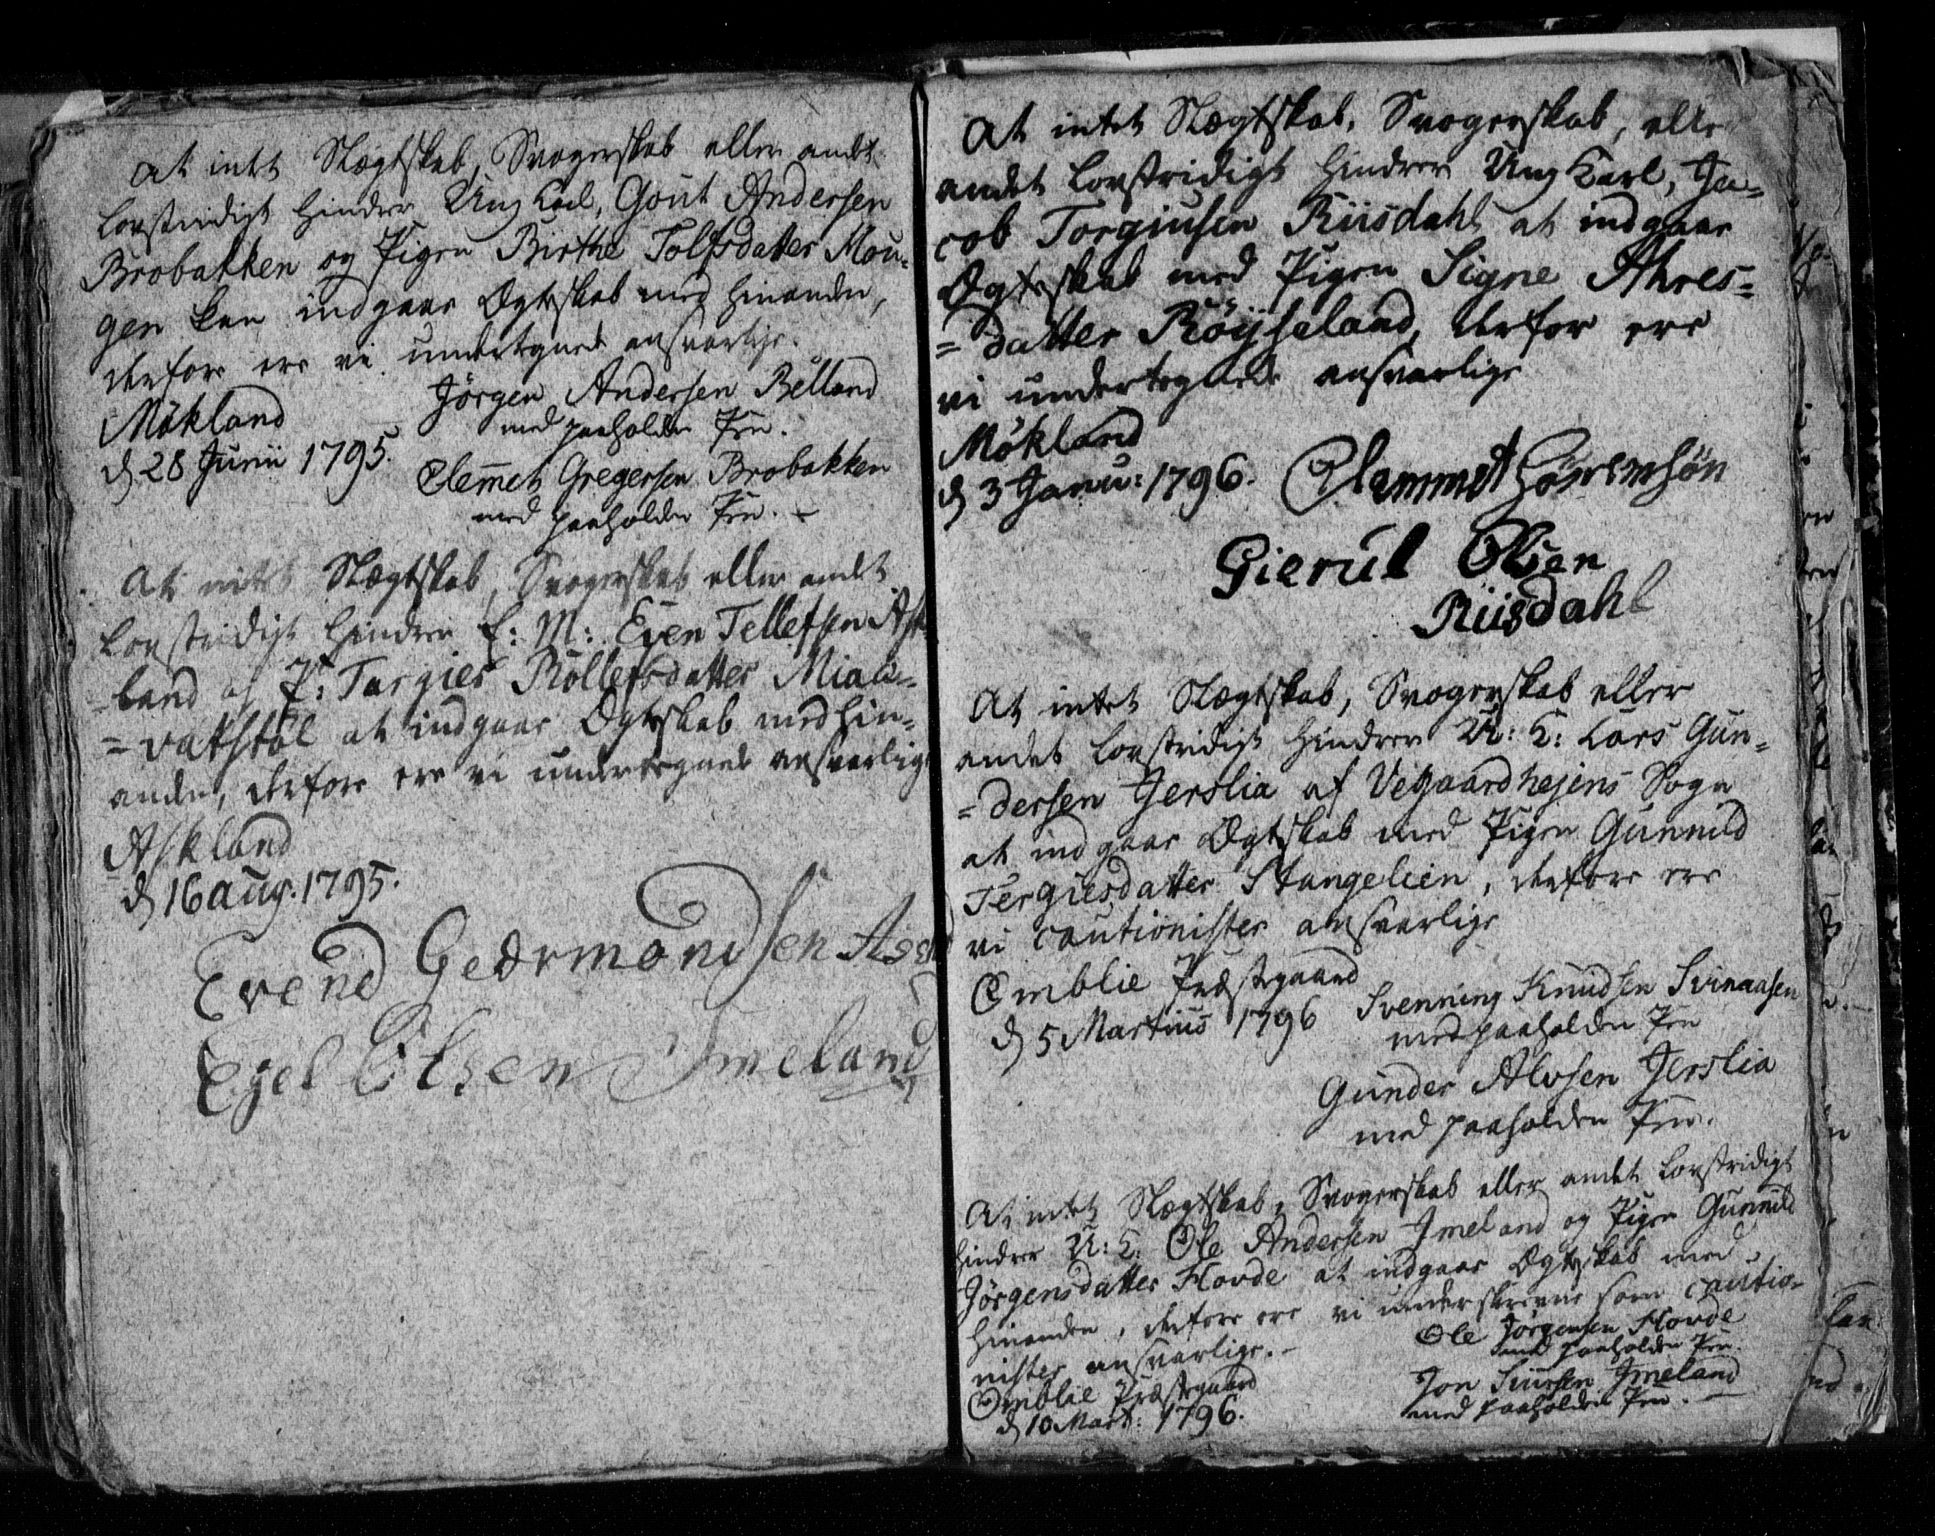 At intet Slægtskab, Svogerskab eller andet
lovstridigt hindrer Ung Karl, Gout Andersen
Brobakken og Pigen Birthe Tolfsdatter Mou-
gen kan indgaae Ægteskab med hinanden,
derfore ere vi undertegnede ansvarlige.
Mökland
d 28 Junii 1795.
Jörgen Andersen Belland
med paaholden Pen.
Clemet Gregersen Brobakken
med paaholden Pen.
At intet Slægtskab, Svogerskab eller andet
lovstridigt hindrer E: M: Even Tellefsen Ask-
-land og P: Targier Rollefsdatter Miaa-
=vatstöl at indgaae Ægteskab med hin-
anden, derfore ere vi undertegnede ansvarlige
Askland
d 16 Aug. 1795.
Evend Gedrmondsen
Egel Olsen Imeland
At intet Slægtskab, Svogerskab, eller
andet lovstridigt hindrer Ung Karl, Ja-
cob Torgiusen Riisdahl at indgaae
Ægteskab med Pigen Signe Ahres=
=datter Röyseland, derfor ere
vi undertegnede ansvarlige
Mökland
d 3 Janu: 1796.
Clammet
Gierul Olsen
Riisdahl
At intet Slægtskab, Svogerskab eller
andet lovstridigt hindrer U: K: Lars Gun-
=dersen Jerslia af Vegaardhejens Sogn
at indgaae Ægteskab med Pigen Gunnild
Tergiesdatter Stangelien, derfore ere
vi cautionister ansvarlige
Omblie Præstegaard
d 5 Martius 1796
Svenning Knudsen Svinaasen
med paaholden Pen
Gunder Alvsen Jerslia
med paaholden Pen.
At intet Slægtskab, Svogerskab eller andet lovstridigt
hindrer U: K: Ole Andersen Imeland og Pigen Gunnild
Jörgensdatter Hovde at indgaae Ægteskab med
hinanden, derfore ere vi underskrevne som cautio-
nister ansvarlige.
Omblie Præstegaard
d 10 Mart: 1796.
Ole Jörgensen Hovde
med paaholden Pen.
Jon Siursen Imeland
med paaholden Pen.